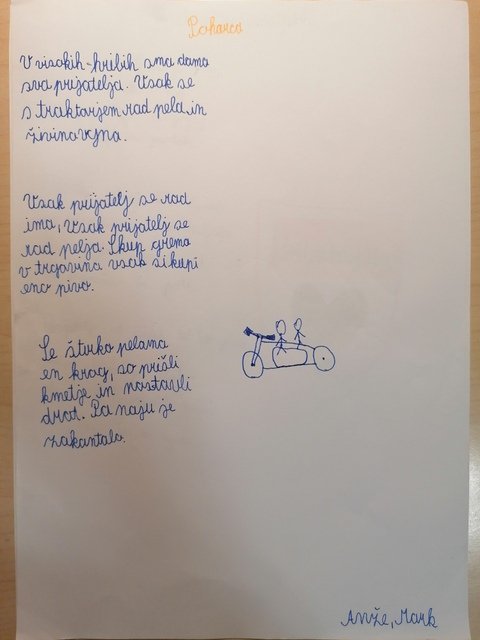 Poharca
V visokih hribih sma dama
sva prijatelja. Vsak se
s traktarjem rad pela in
živinovjna.
Vsak prijatelj se rad
ima, Vsak prijatelj se
rad pelja. Skup grema
v trgavina vsak si kupi
eno pivo.
Še štirko pelama
en krog, so prišli
kmetje in nastavli
drat. Pa naju je
zakantalo.
Anže, Mark